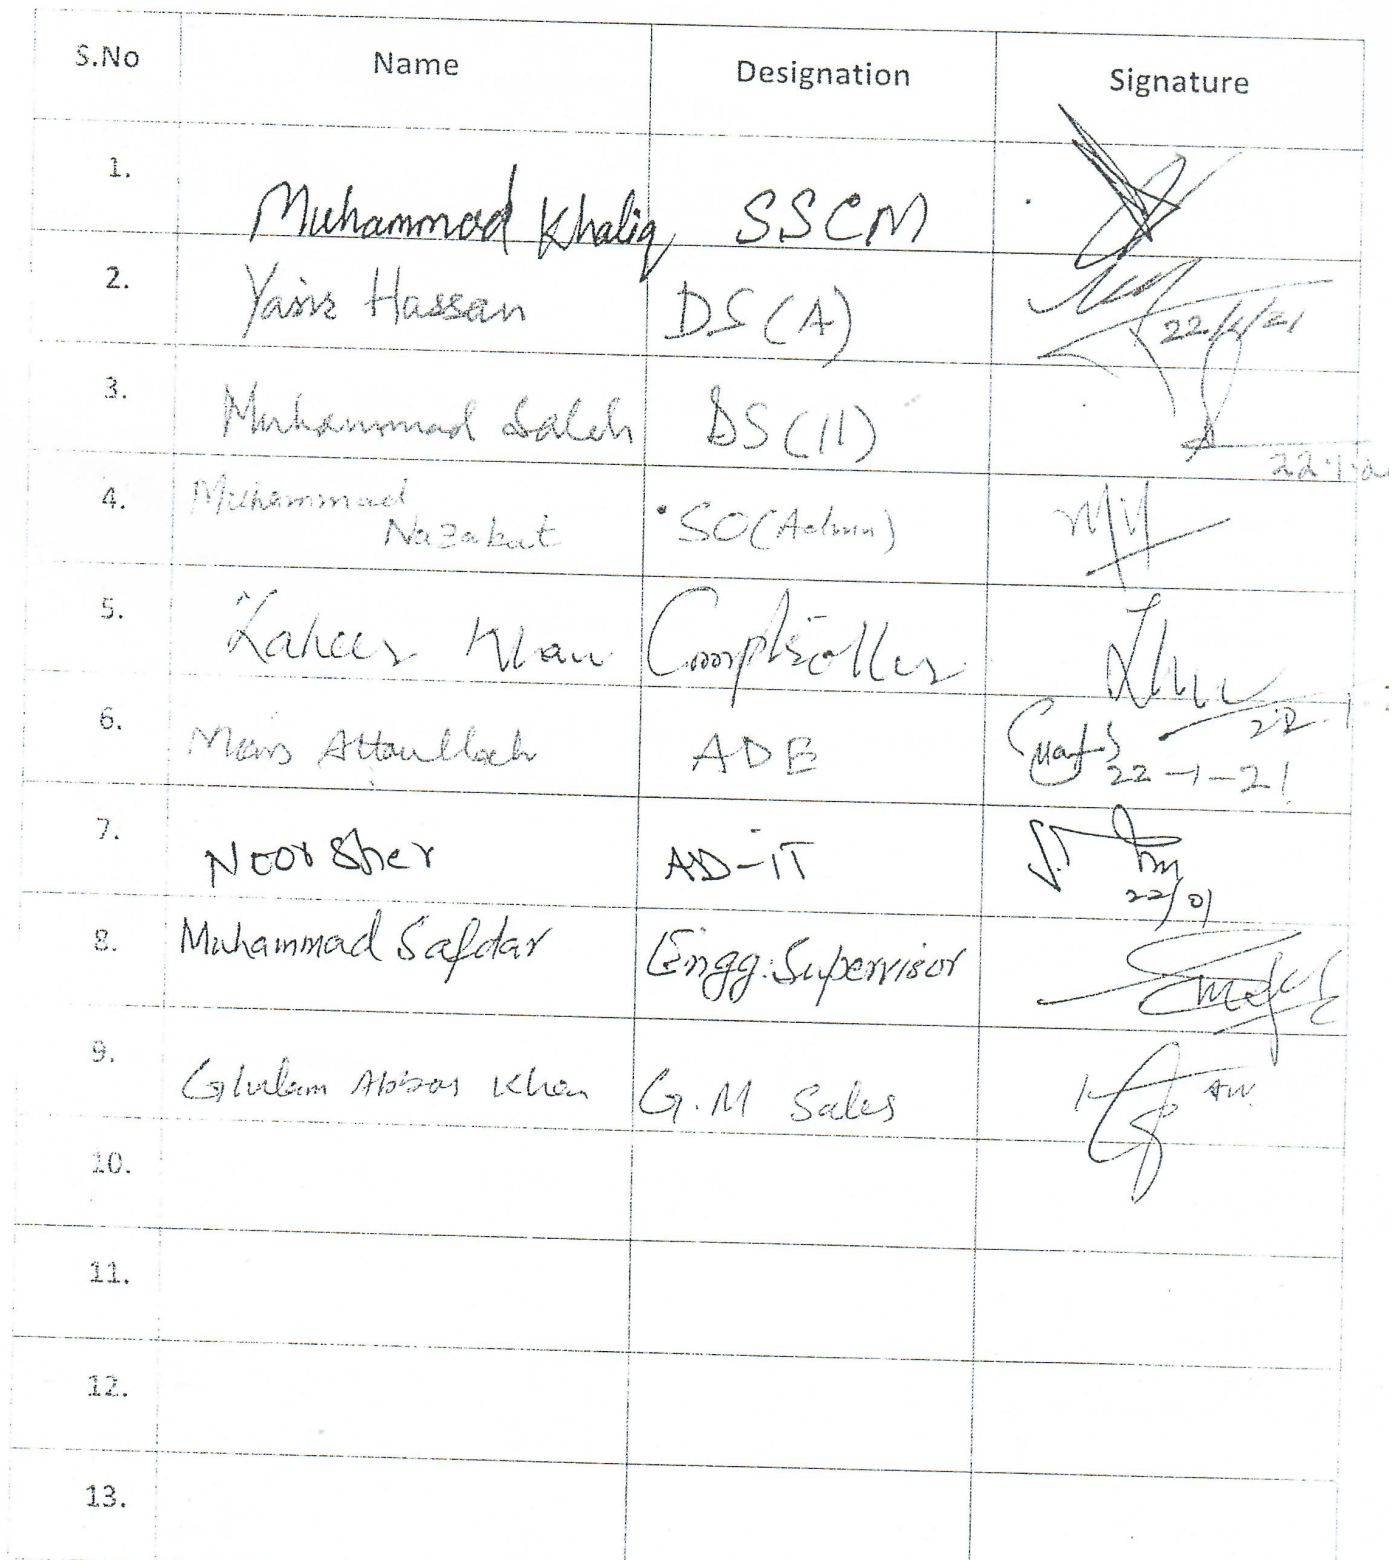 S.No Name Designation Signature
1. Muhammad Khaliq SSCM
2. Hassan DS(A) 22/1/21
3. Muhammad Saleh DS(II) 22.1.2
4. Muhammad
Nazakat SO(Admn)
5. Zaheer Khan Comptroller 22.1.
6. Attaullah 22-1-21
7. Noor Sher AD-IT 22/01
8. Muhammad Safdar Engg. Supervisor
9. Ghulam Abbas Khan G.M Sales
10.
11.
12.
13.